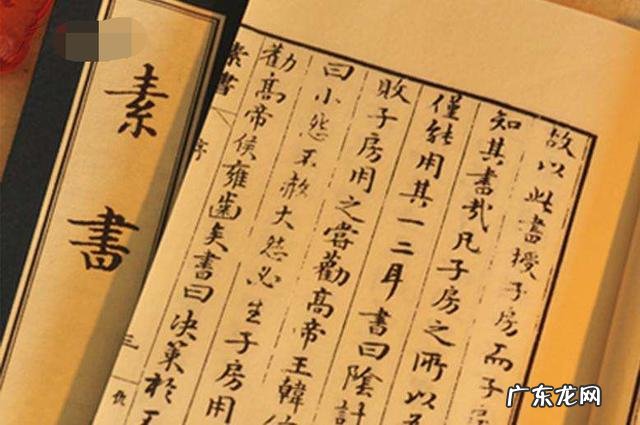 素書
故以此書授子房而子
知其書哉凡子房之所以
僅能用其一二耳書曰陰計
敗子房用之嘗勸高帝王韓
曰小怨不赦大怨必生子房用
勸高帝侯雍齒矣書曰決策於
素書
序
三
广东龙网